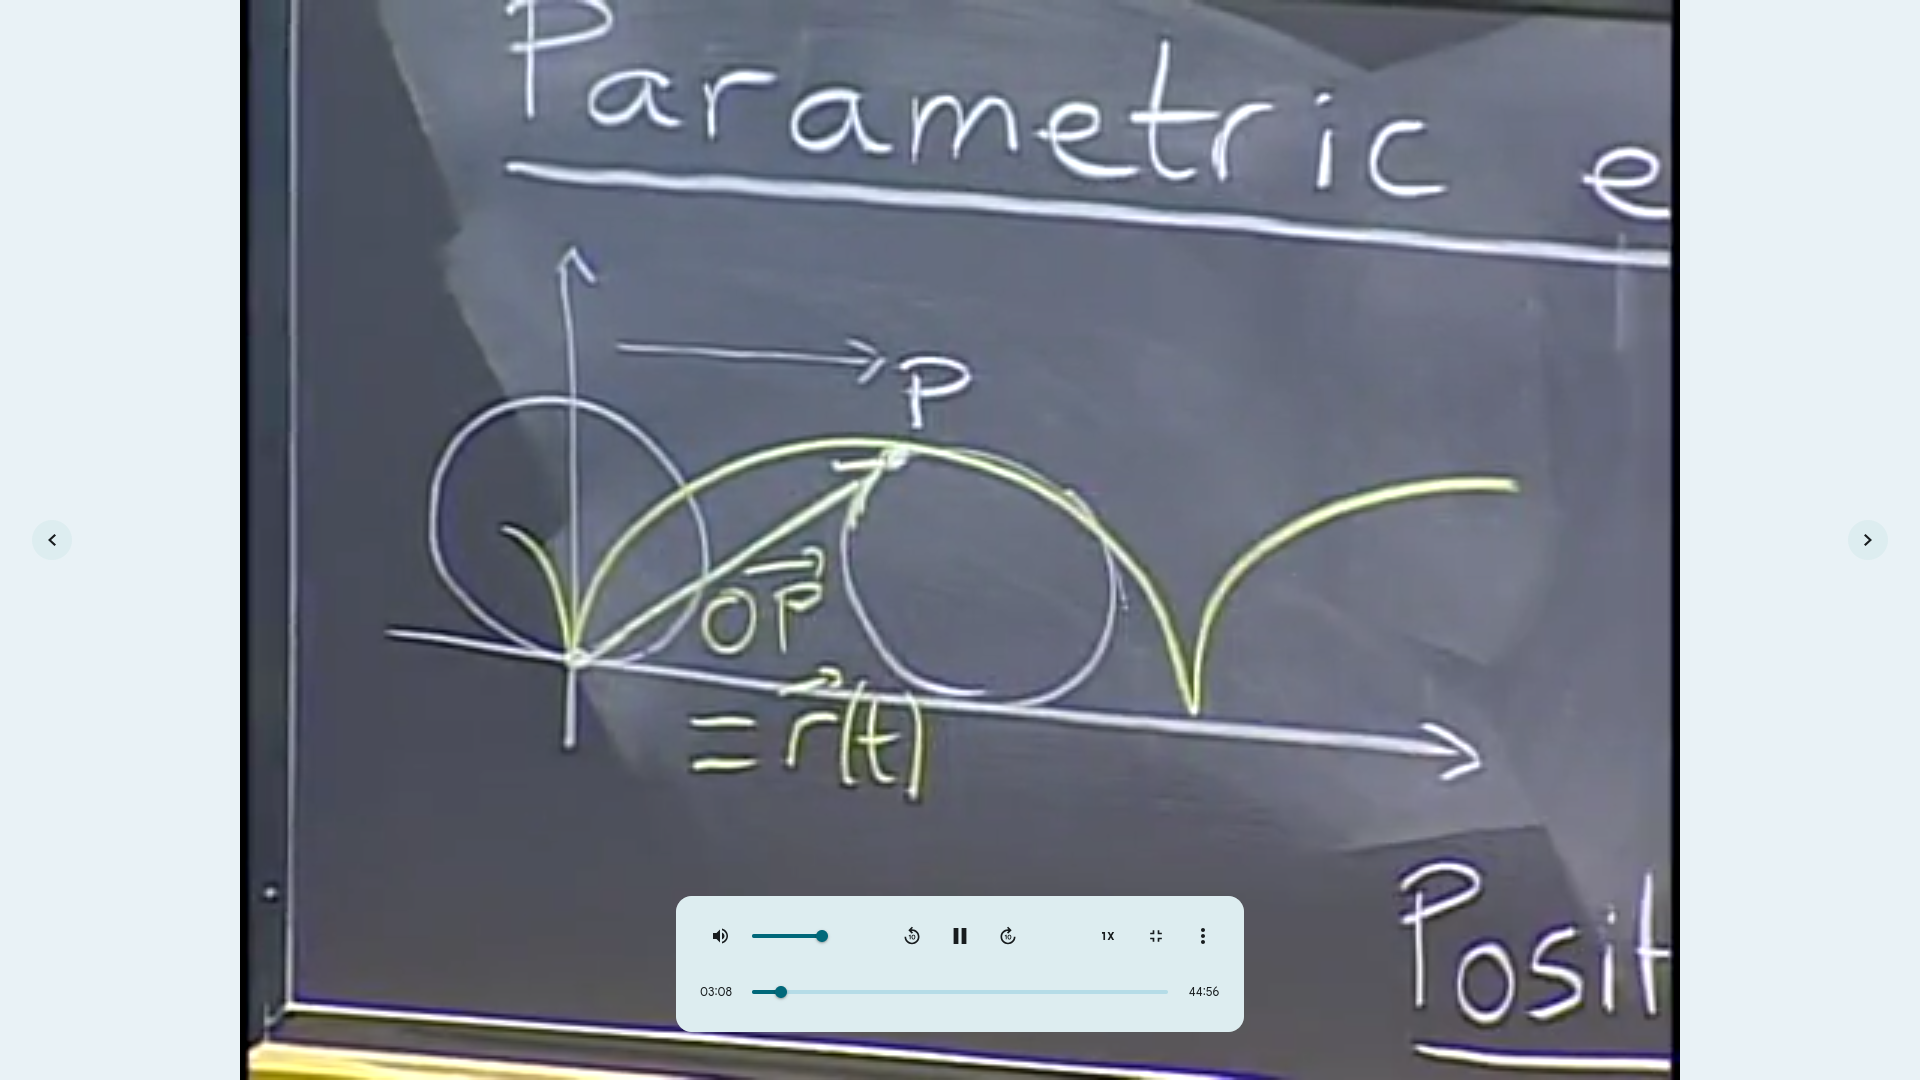 Parametric e
P
OP
= r(t)
Posit
1X
03:08
44:56